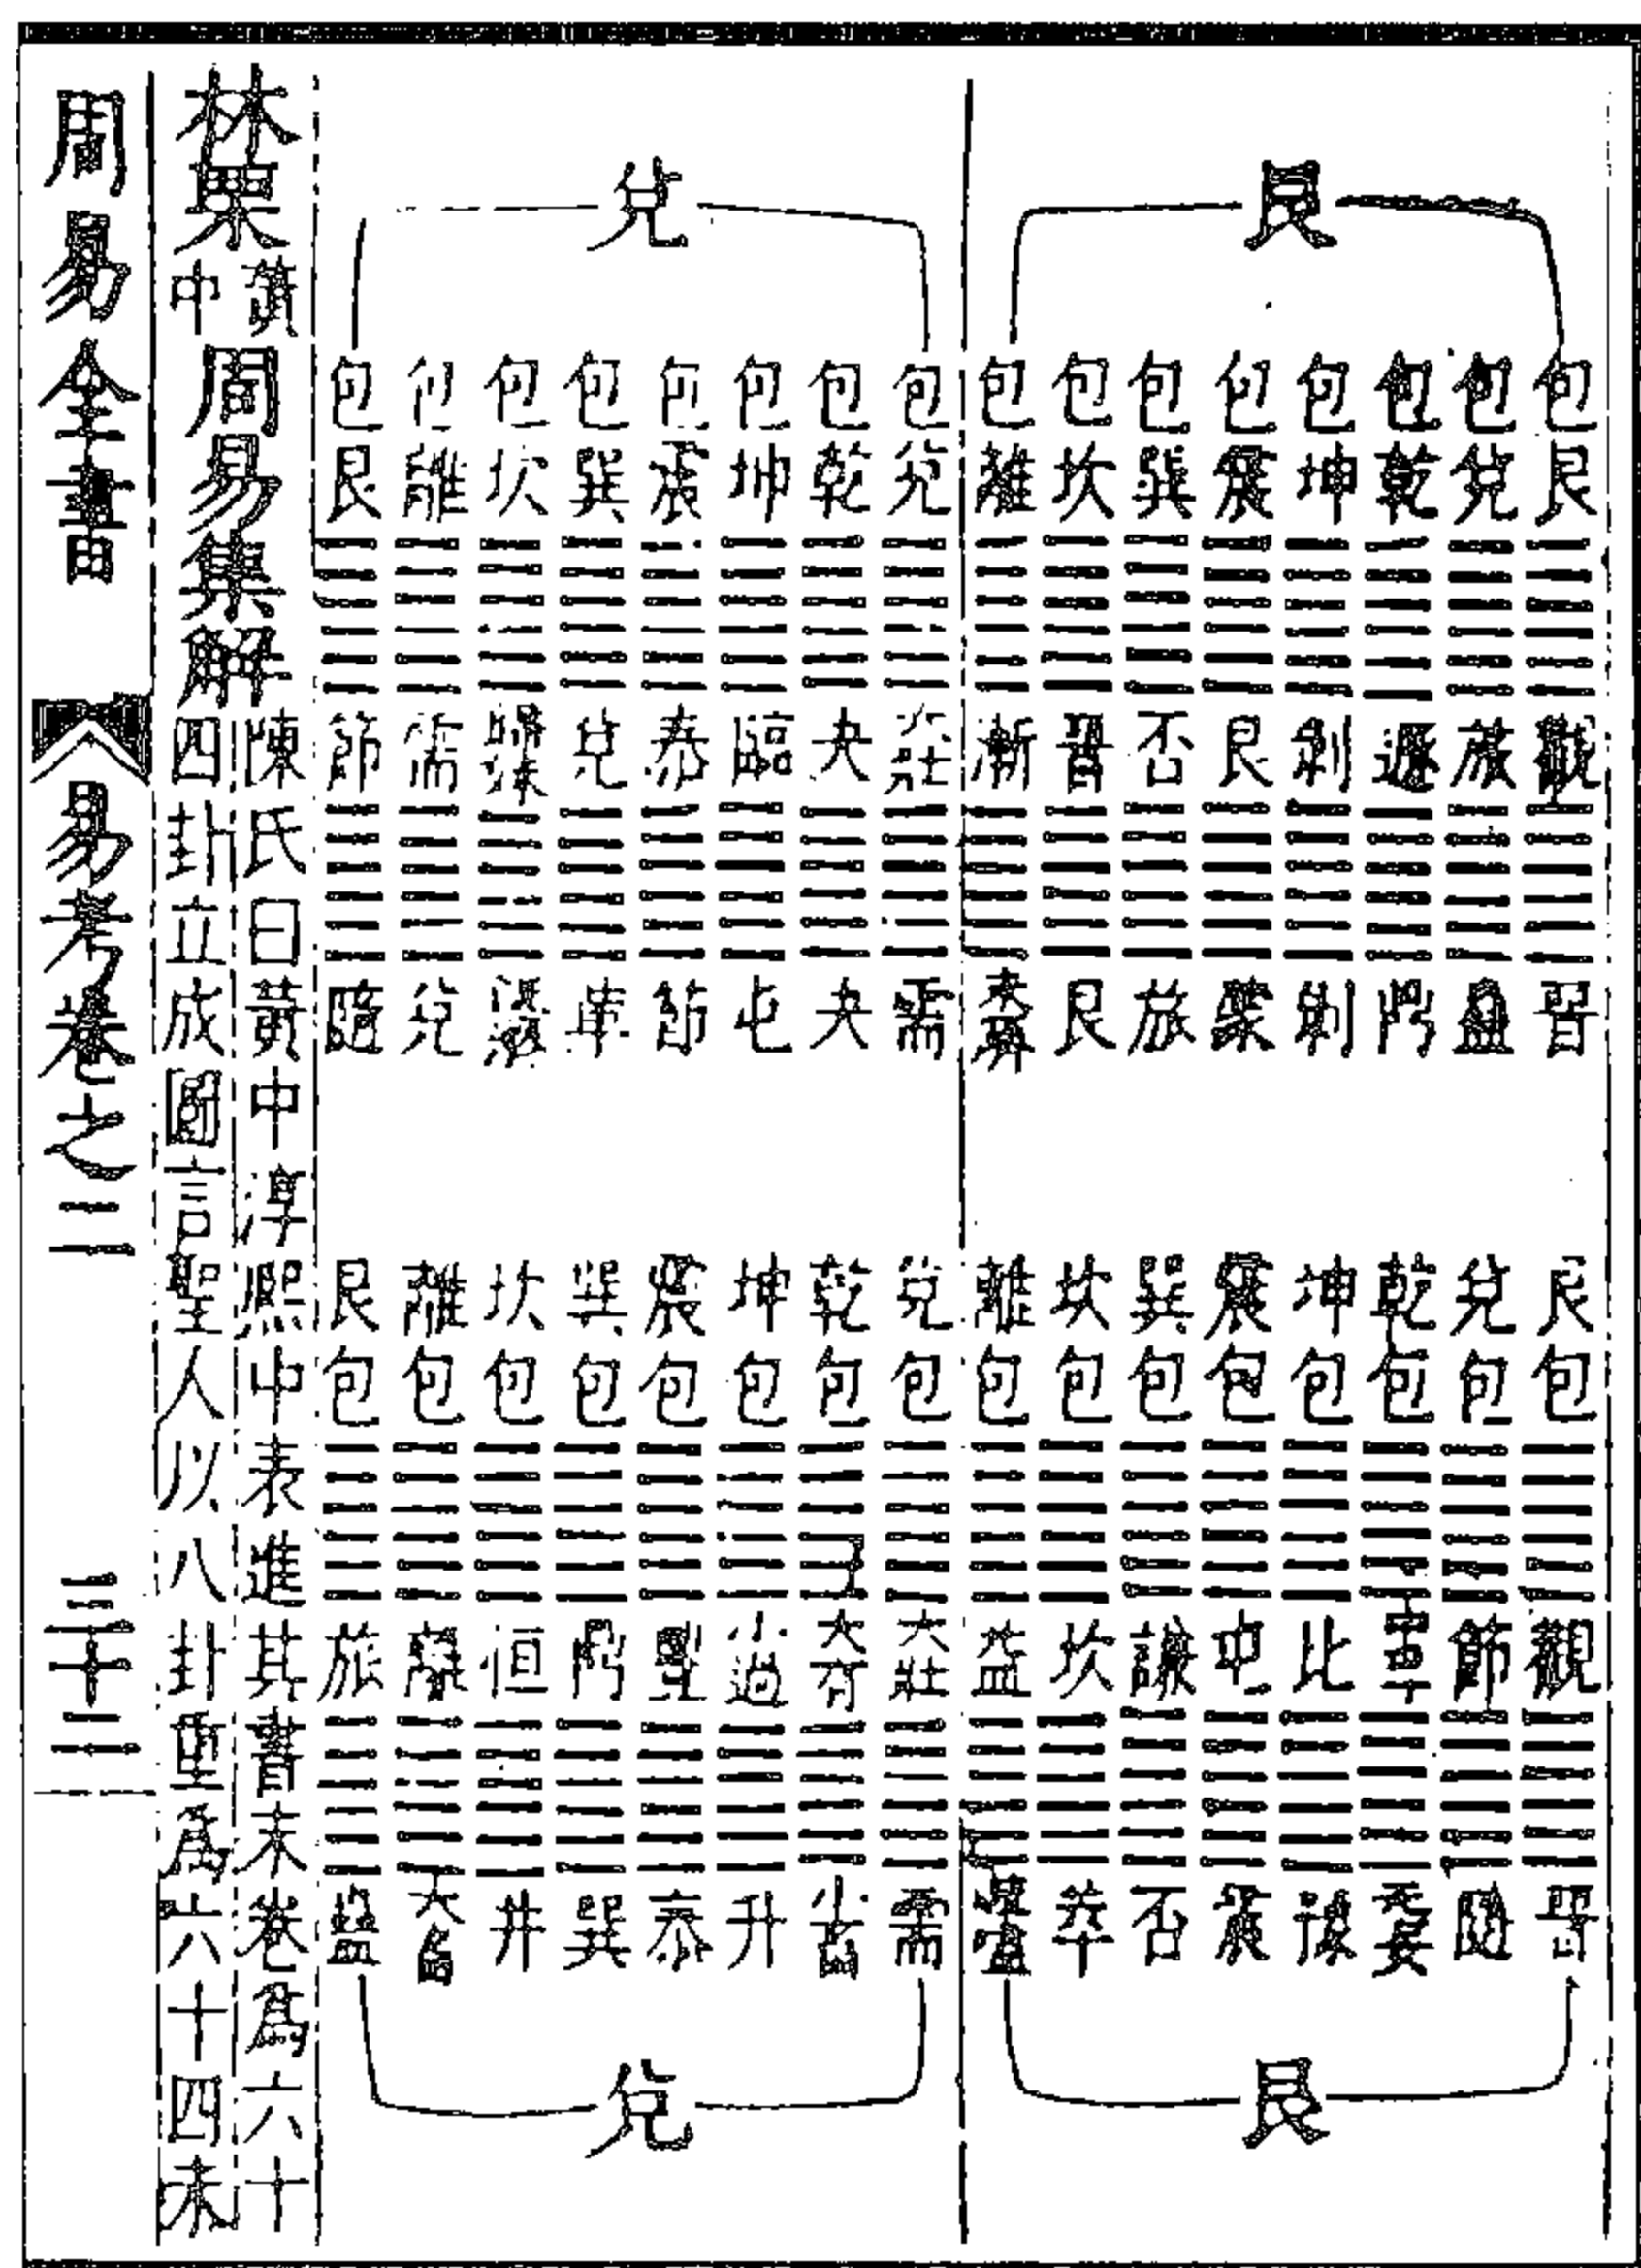 艮
包艮 觀 晉
包兌 旅 蠱
包乾 遯 鼎
包坤 剝 剝
包震 艮 蒙
包巽 否 旅
包坎 晉 艮
包離 漸 未濟
艮包 觀 晉
兌包 節 隨
乾包 中孚 无妄
坤包 比 豫
震包 屯 震
巽包 謙 否
坎包 坎 萃
離包 益 噬嗑
艮
兌
包兌 大壯 需
包乾 夬 夬
包坤 臨 屯
包震 泰 節
包巽 兌 革
包坎 歸妹 既濟
包離 需 兌
包艮 節 隨
兌包 大壯 需
乾包 大有 小畜
坤包 小過 升
震包 豐 泰
巽包 鼎 巽
坎包 恒 井
離包 離 大畜
艮包 旅 蠱
兌
林栗黃中周易集解
陳氏曰黃中淳熙中表進其書末卷爲六十
四卦立成圖言聖人以八卦重爲六十四未
周易全書 易考卷之二 三十二